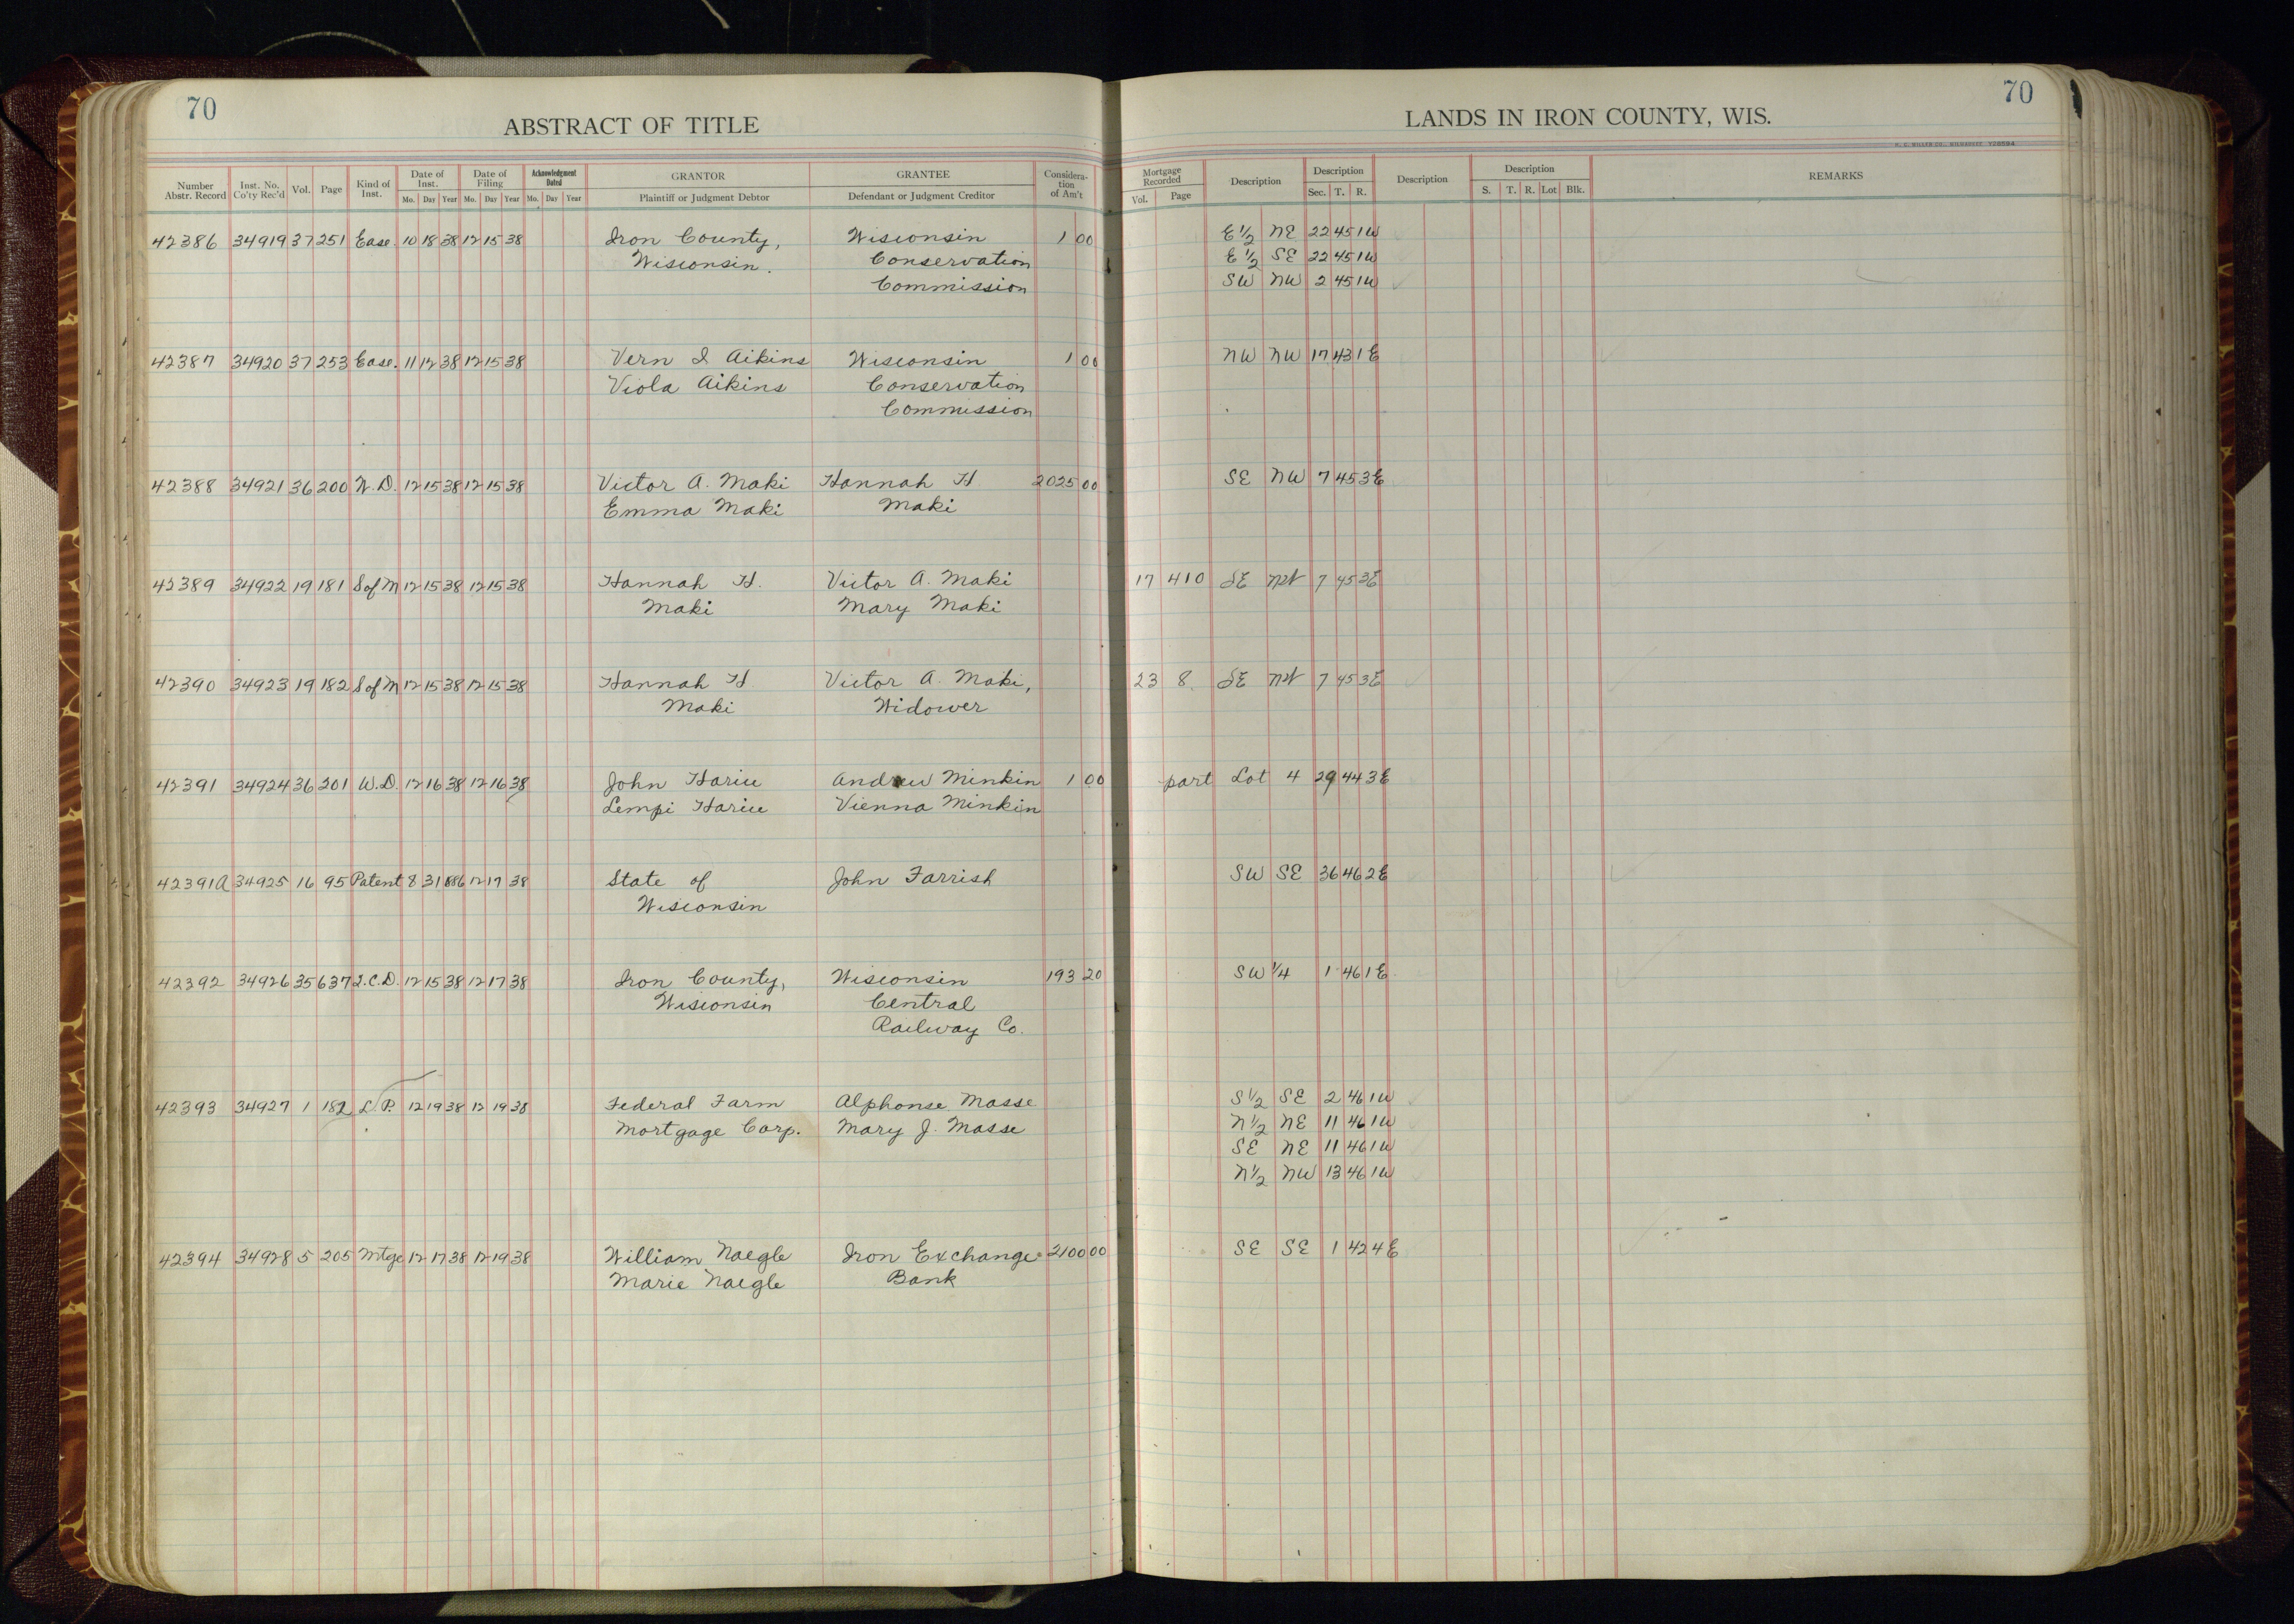 70
ABSTRACT OF TITLE
Number Abstr. Record Inst. No. Co'ty Rec'd Vol. Page Kind of Inst. Date of Inst. Mo. Day Year Date of Filing Mo. Day Year Acknowledgment Dated Mo. Day Year GRANTOR Plaintiff or Judgment Debtor GRANTEE Defendant or Judgment Creditor Considera-tion of Am't
LANDS IN IRON COUNTY, WIS.
70
Mortgage Recorded Vol. Page Description Description Sec. T. R. Description Description S. T. R. Lot Blk. REMARKS
42386 34919 37 251 Ease. 10 18 38 12 15 38 Iron County, Wisconsin 1 00 E 1/2 NE 22 45 1W
Wisconsin. Conservation E 1/2 SE 22 45 1W
Commission SW NW 2 45 1W
42387 34920 37 253 Ease. 11 12 38 12 15 38 Vern I Aikins Wisconsin 1 00 NW NW 17 43 1E
Viola Aikins Conservation
Commission
42388 34921 36 200 W.D. 12 15 38 12 15 38 Victor A. Maki Hannah H 2025 00 SE NW 7 45 3E
Emma Maki Maki
42389 34922 19 181 S of M 12 15 38 12 15 38 Hannah H. Victor A. Maki 17 410 SE NW 7 45 3E
Maki Mary Maki
42390 34923 19 182 S of M 12 15 38 12 15 38 Hannah H Victor A. Maki, 23 8 SE NW 7 45 3E
Maki Widower
42391 34924 36 201 W.D. 12 16 38 12 16 38 John Andrew Minkin 1 00 part Lot 4 29 44 3E
Lempi Vienna Minkin
42391A 34925 16 95 Patent 8 3 1886 12 17 38 State of John Farrish SW SE 36 46 2E
Wisconsin
42392 34926 35 637 Q.C.D. 12 15 38 12 17 38 Iron County, Wisconsin 193 20 SW 1/4 1 46 1E
Wisconsin Central
Railway Co.
42393 34927 1 182 L.P. 12 19 38 12 19 38 Federal Farm Alphonse Masse S 1/2 SE 2 46 1W
Mortgage Corp. Mary J. Masse N 1/2 NE 11 46 1W
SE NE 11 46 1W
N 1/2 NW 13 46 1W
42394 34928 5 205 Mtge 12 17 38 12 19 38 William Naegle Iron Exchange 2100 00 SE SE 1 42 4E
Marie Naegle Bank